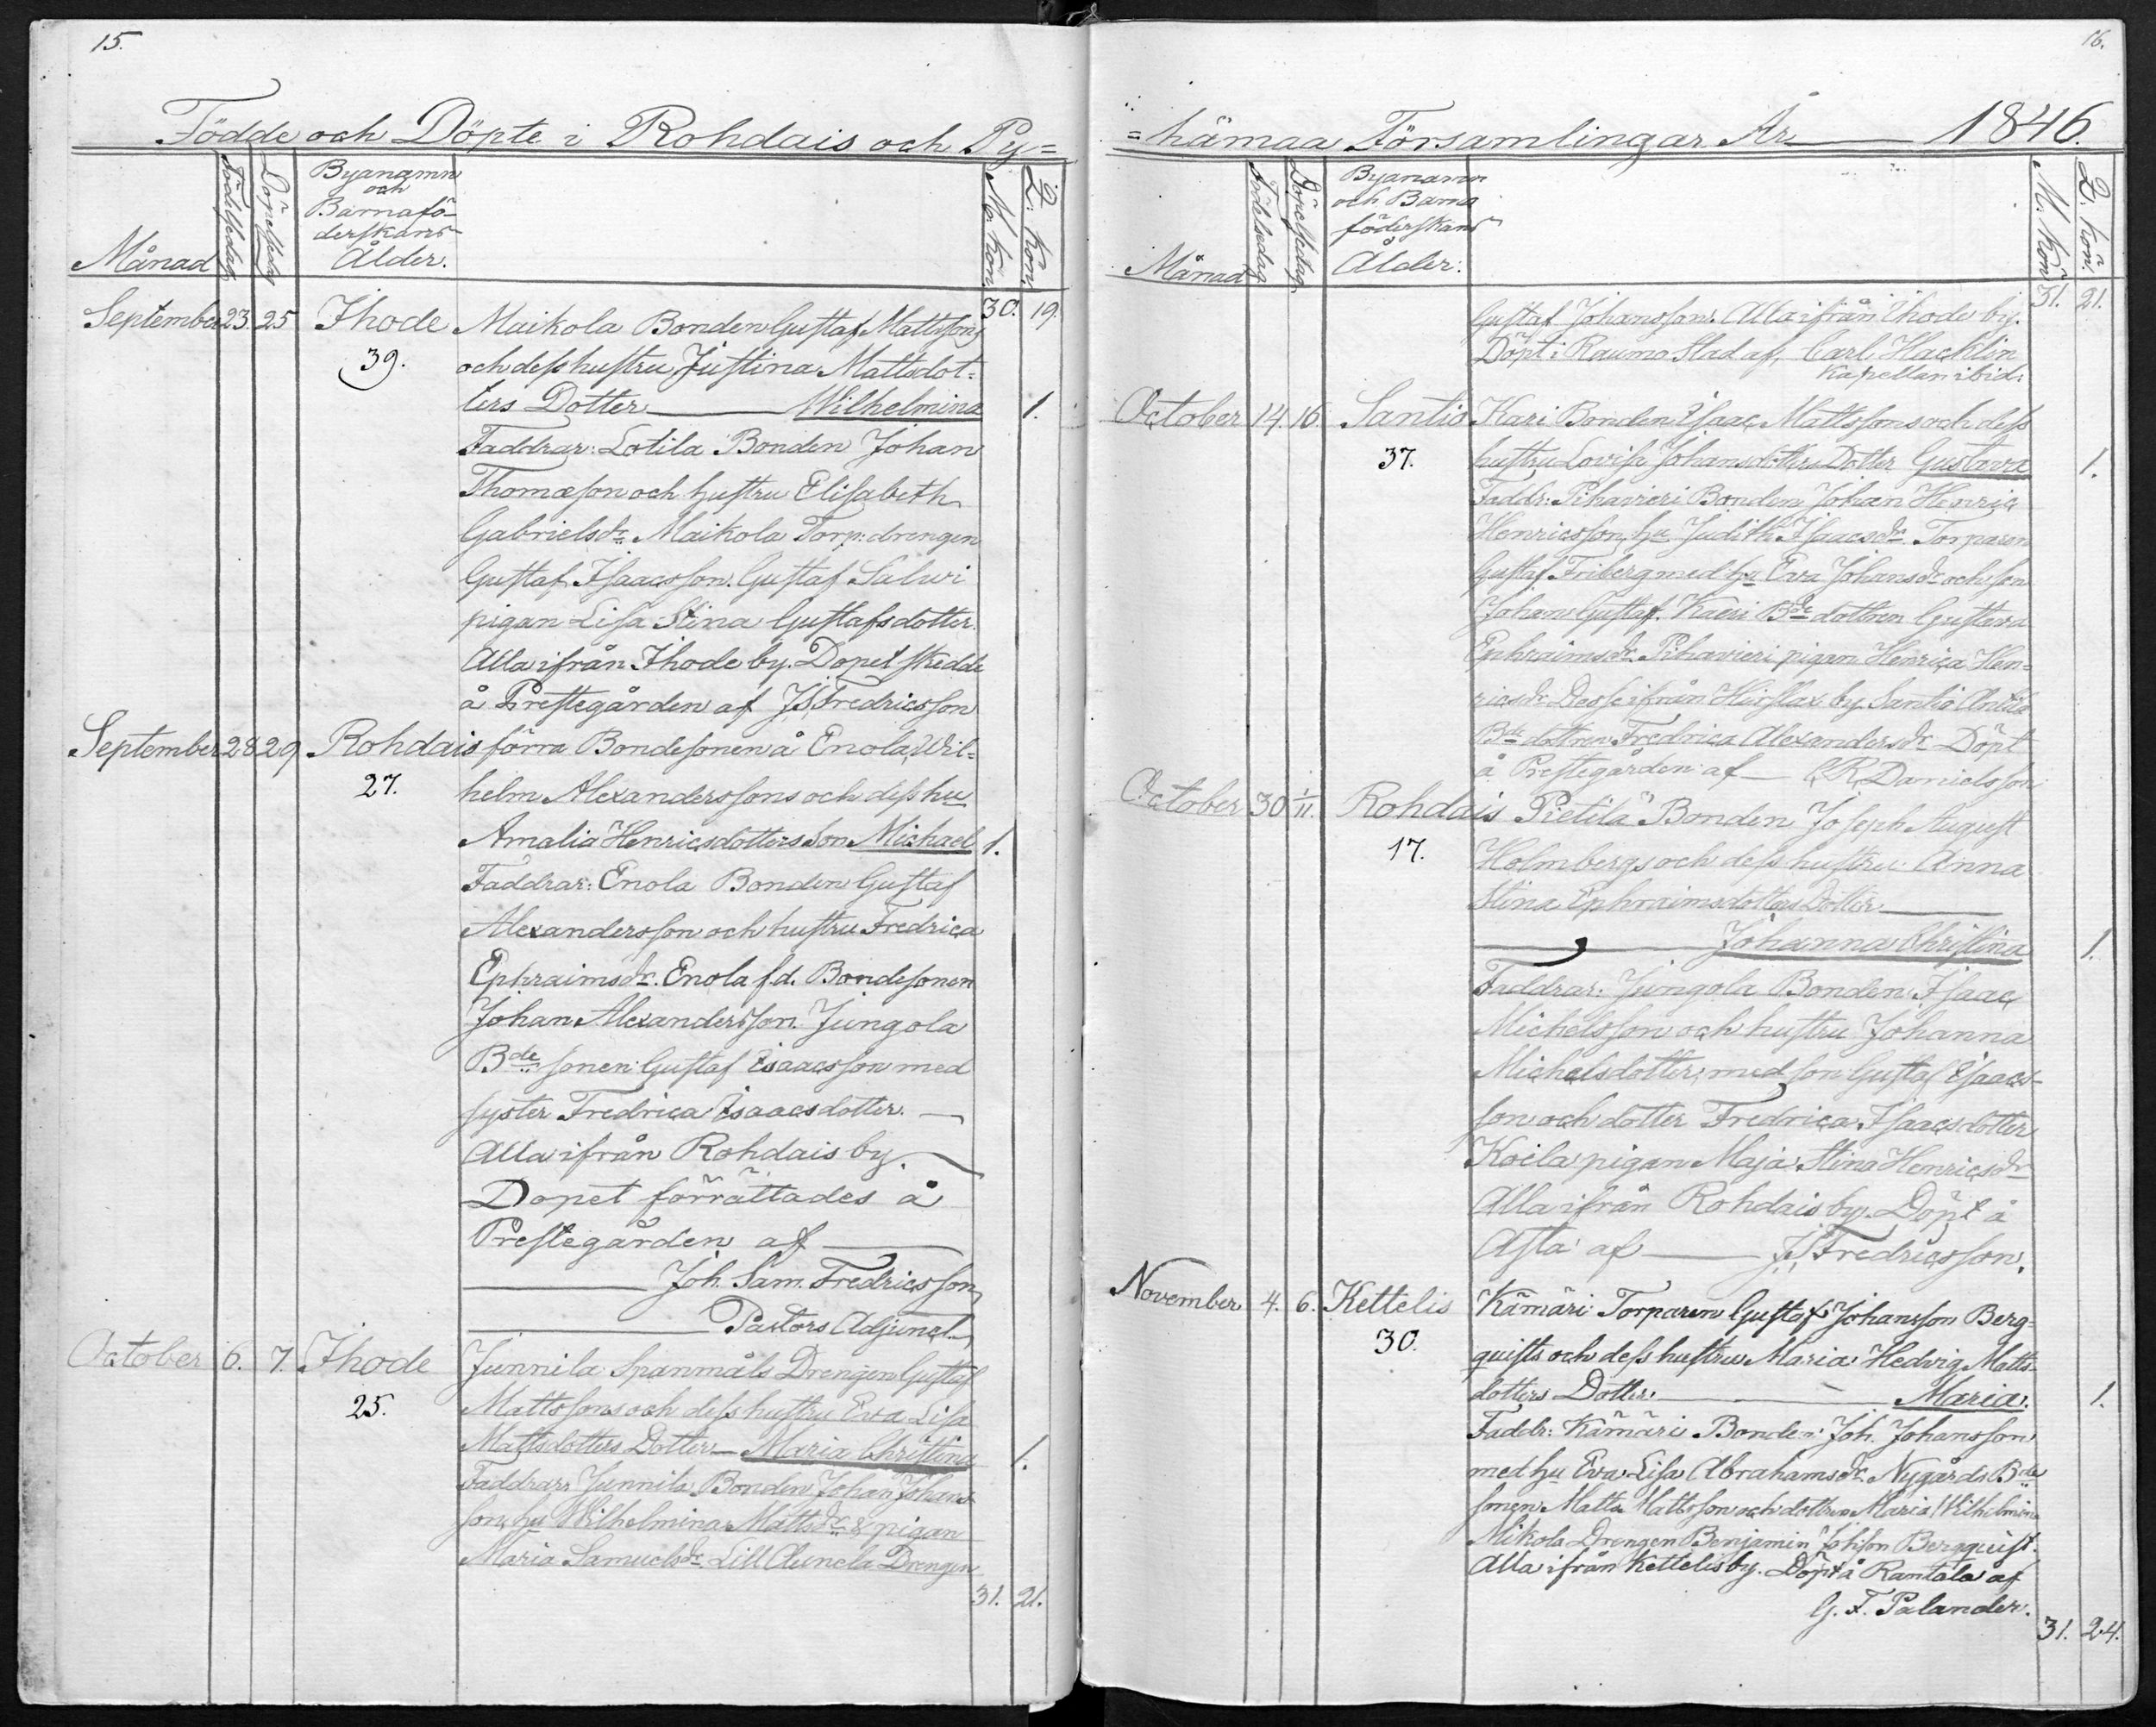 15.
Födde och Döpte i Rohdais och Py=
Månad
Födelsedag
Döpelsedag
Byanamn
och
Barnafö-
derskans
Ålder.
M. Kön
Q. Kön.
30. 19.
September 23. 25 Ihode Maikola Bonden Gustaf Mattssons
39. och dess hustru Justina Mattsdot-
ters Dotter Wilhelmina 1.
Faddrar: Lotila Bonden Johan
Thomæson och hustru Elisabeth
Gabrielsdr. Maikola Torp: drengen
Gustaf Isaacsson. Gustaf Salwi
pigan Lisa Stina Gustafsdotter.
Alla ifrån Ihode by. Dopet skedde
å Prestegården af J. S. Fredricsson
September 28 29 Rohdais förra Bondesonen å Enola, Wil-
27. helm Alexanderssons och dess hu
Amalia Henricsdotters Son Michael 1.
Faddrar: Enola Bonden Gustaf
Alexandersson och hustru Fredrica
Ephraimsdr. Enola f.d. Bondesonen
Johan Alexandersson. Jungola
Bde sonen Gustaf Isaacsson med
syster Fredrica Isaacsdotter.
Alla ifrån Rohdais by.
Dopet förrättades å
Prestegården af
Joh. Sam. Fredricsson
Pastors Adjunct.
October 6. 7. Ihode Junnila Spanmåls Drengen Gustaf
25. Mattssons och dess hustru Eva Lisa
Mattsdotters Dotter Maria Christina 1.
Faddrar: Junnila Bonden Johan Johans-
son, hu Wilhelmina Mattsdr & pigan
Maria Samuelsdr. Lill Drengen
31. 21.
16.
=hämaa Församlingar År 1846.
Månad
Födelsedag
Döpelsedag
Byanamn
och Barna
föderskans
Ålder.
M. Kön
Q. Kön.
31. 21.
Gustaf Johansson. Alla ifrån Ihode by.
Döpt i Raumo Stad af, Carl Hacklin
Kapellan ibid:
October 14. 16 Santio Kari Bonden Isaac Mattssons och dess
37. hustru Lovisa Johansdotters Dotter Gustava 1.
Faddr: Pihavieri Bonden Johan Henric
Henricsson, hu Judith Isaacsdr. Torparen
Gustaf Friberg med hu Eva Johansdr och son
Johan Gustaf. Kaeri Bde dottren Gustava
Ephraimsdr. Pihavieri pigan Henrica Hen-
ricsdr Desse ifrån by. Santio
Bde dottren Fredrica Alexandersdr. Döpt
å Prestegården af C. R. Danielsson
October 30 1/11. Rohdais Pietilä Bonden Joseph August
17. Holmbergs och dess hustru Anna
Stina Ephraimsdotters Dotter
Johanna Christina 1.
Faddrar: Jungola Bonden Isaac
Michelsson och hustru Johanna
Michelsdotter, med son Gustaf Isaacs-
son och dotter Fredrica Isaacsdotter
Koila pigan Maja Stina Henricsdr
Alla ifrån Rohdais by. Döpt å
Asta af J. S. Fredricsson.
November 4. 6. Kettelis Kämäri Torparen Gustaf Johansson Berg-
30. quists och dess hustru Maria Hedvig Matts-
dotters Dotter Maria. 1.
Faddr: Kämäri Bonden Joh. Johansson
med hu Eva Lisa Abrahamsdr. Nygårds Bde
sonen Matts Mattsson och dottren Maria Wilhelmina
Mikola Drengen Benjamin Johsson Bergquist.
Alla ifrån Kettelis by. Döpt å Rantala af
G. F. Palander.
31. 24.